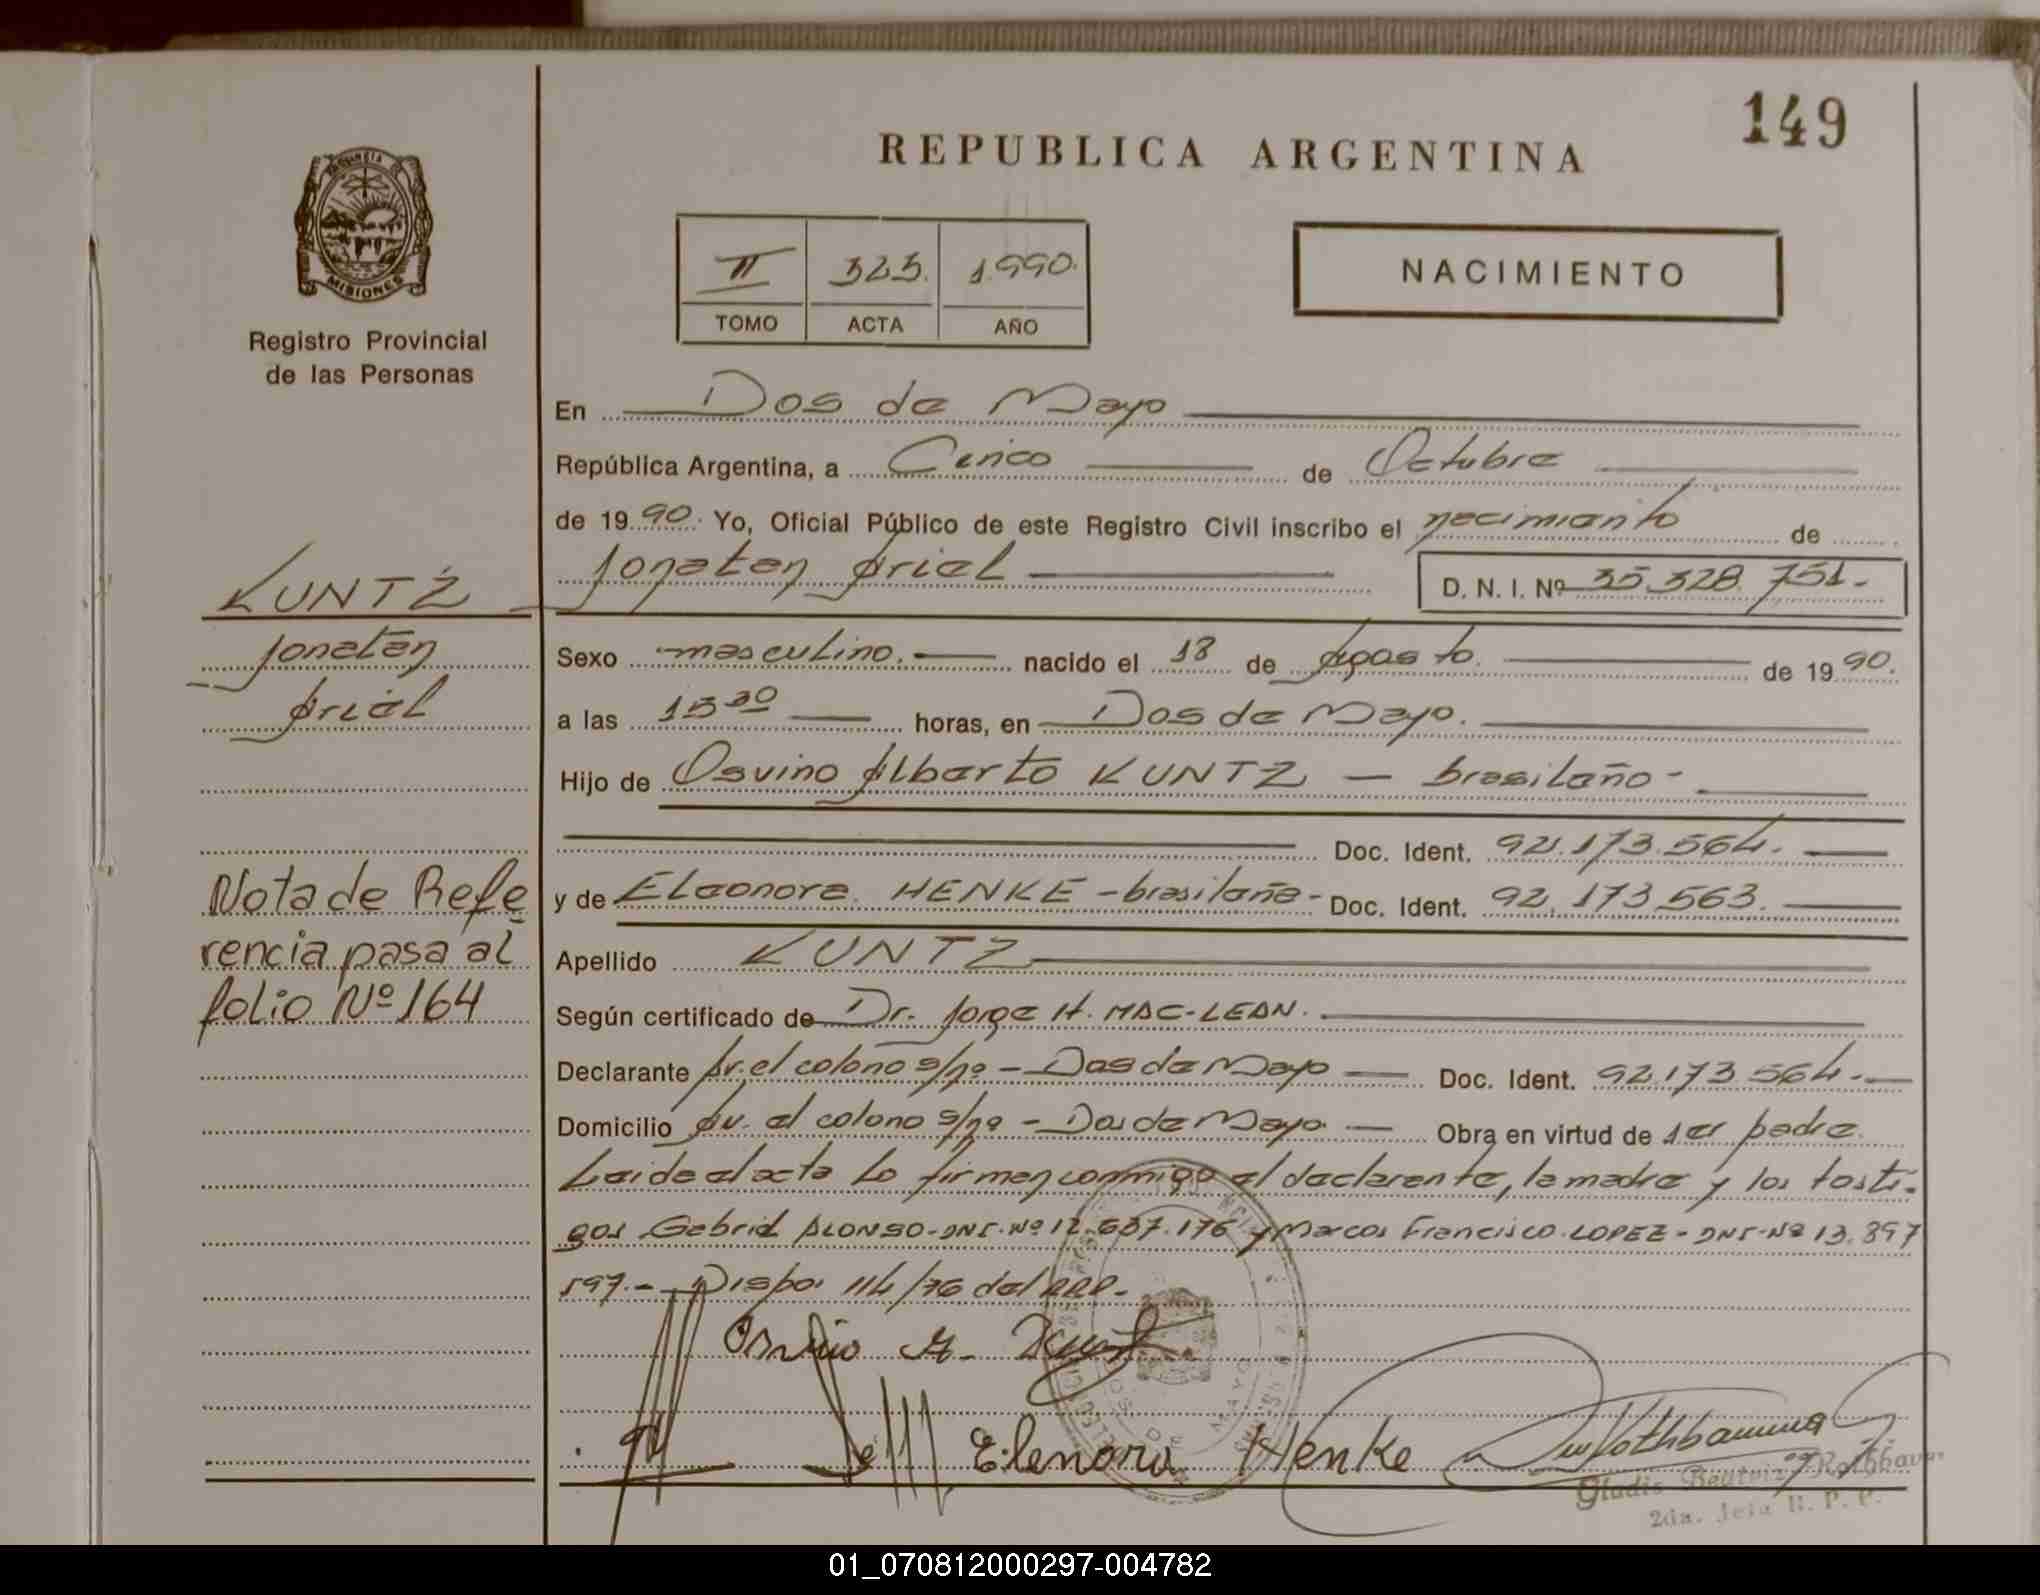 149
REPUBLICA ARGENTINA
MISIONES
Registro Provincial
de las Personas
II 323. 1.990.
TOMO ACTA AÑO
NACIMIENTO
En Dos de Mayo
República Argentina, a Cinco de Octubre
de 1990. Yo, Oficial Público de este Registro Civil inscribo el nacimiento de
Jonatan Ariel D. N. I. Nº 35.328.751.-
KUNTZ
Jonatan
Ariel
Sexo masculino. nacido el 18 de Agosto. de 1990.
a las 15 30 horas, en Dos de Mayo.
Hijo de Osvino Alberto KUNTZ - brasileño -
Doc. Ident. 92.173.564.
y de Eleonora HENKE - brasileña - Doc. Ident. 92.173.563.
Apellido KUNTZ
Según certificado de Dr. Jorge H. MAC-LEAN.
Declarante Av. el colono s/nº - Dos de Mayo Doc. Ident. 92.173.564.
Domicilio Av. el colono s/nº - Dos de Mayo. Obra en virtud de ser padre.
Leida el acta lo firman conmigo el declarante, la madre y los testi-
gos Gabriel ALONSO-DNI-Nº 12.637.176 y Marcos Francisco LOPEZ-DNI-Nº 13.897
597.- Dispo. 114/76 del RPP.-
Nota de Refe
rencia pasa al
folio Nº 164
Osvino A. Kuntz
Elenora Henke
Gladis Beatriz Rothbaum
2da. Jefa R. P. P.
DOS DE MAYO
01_070812000297-004782